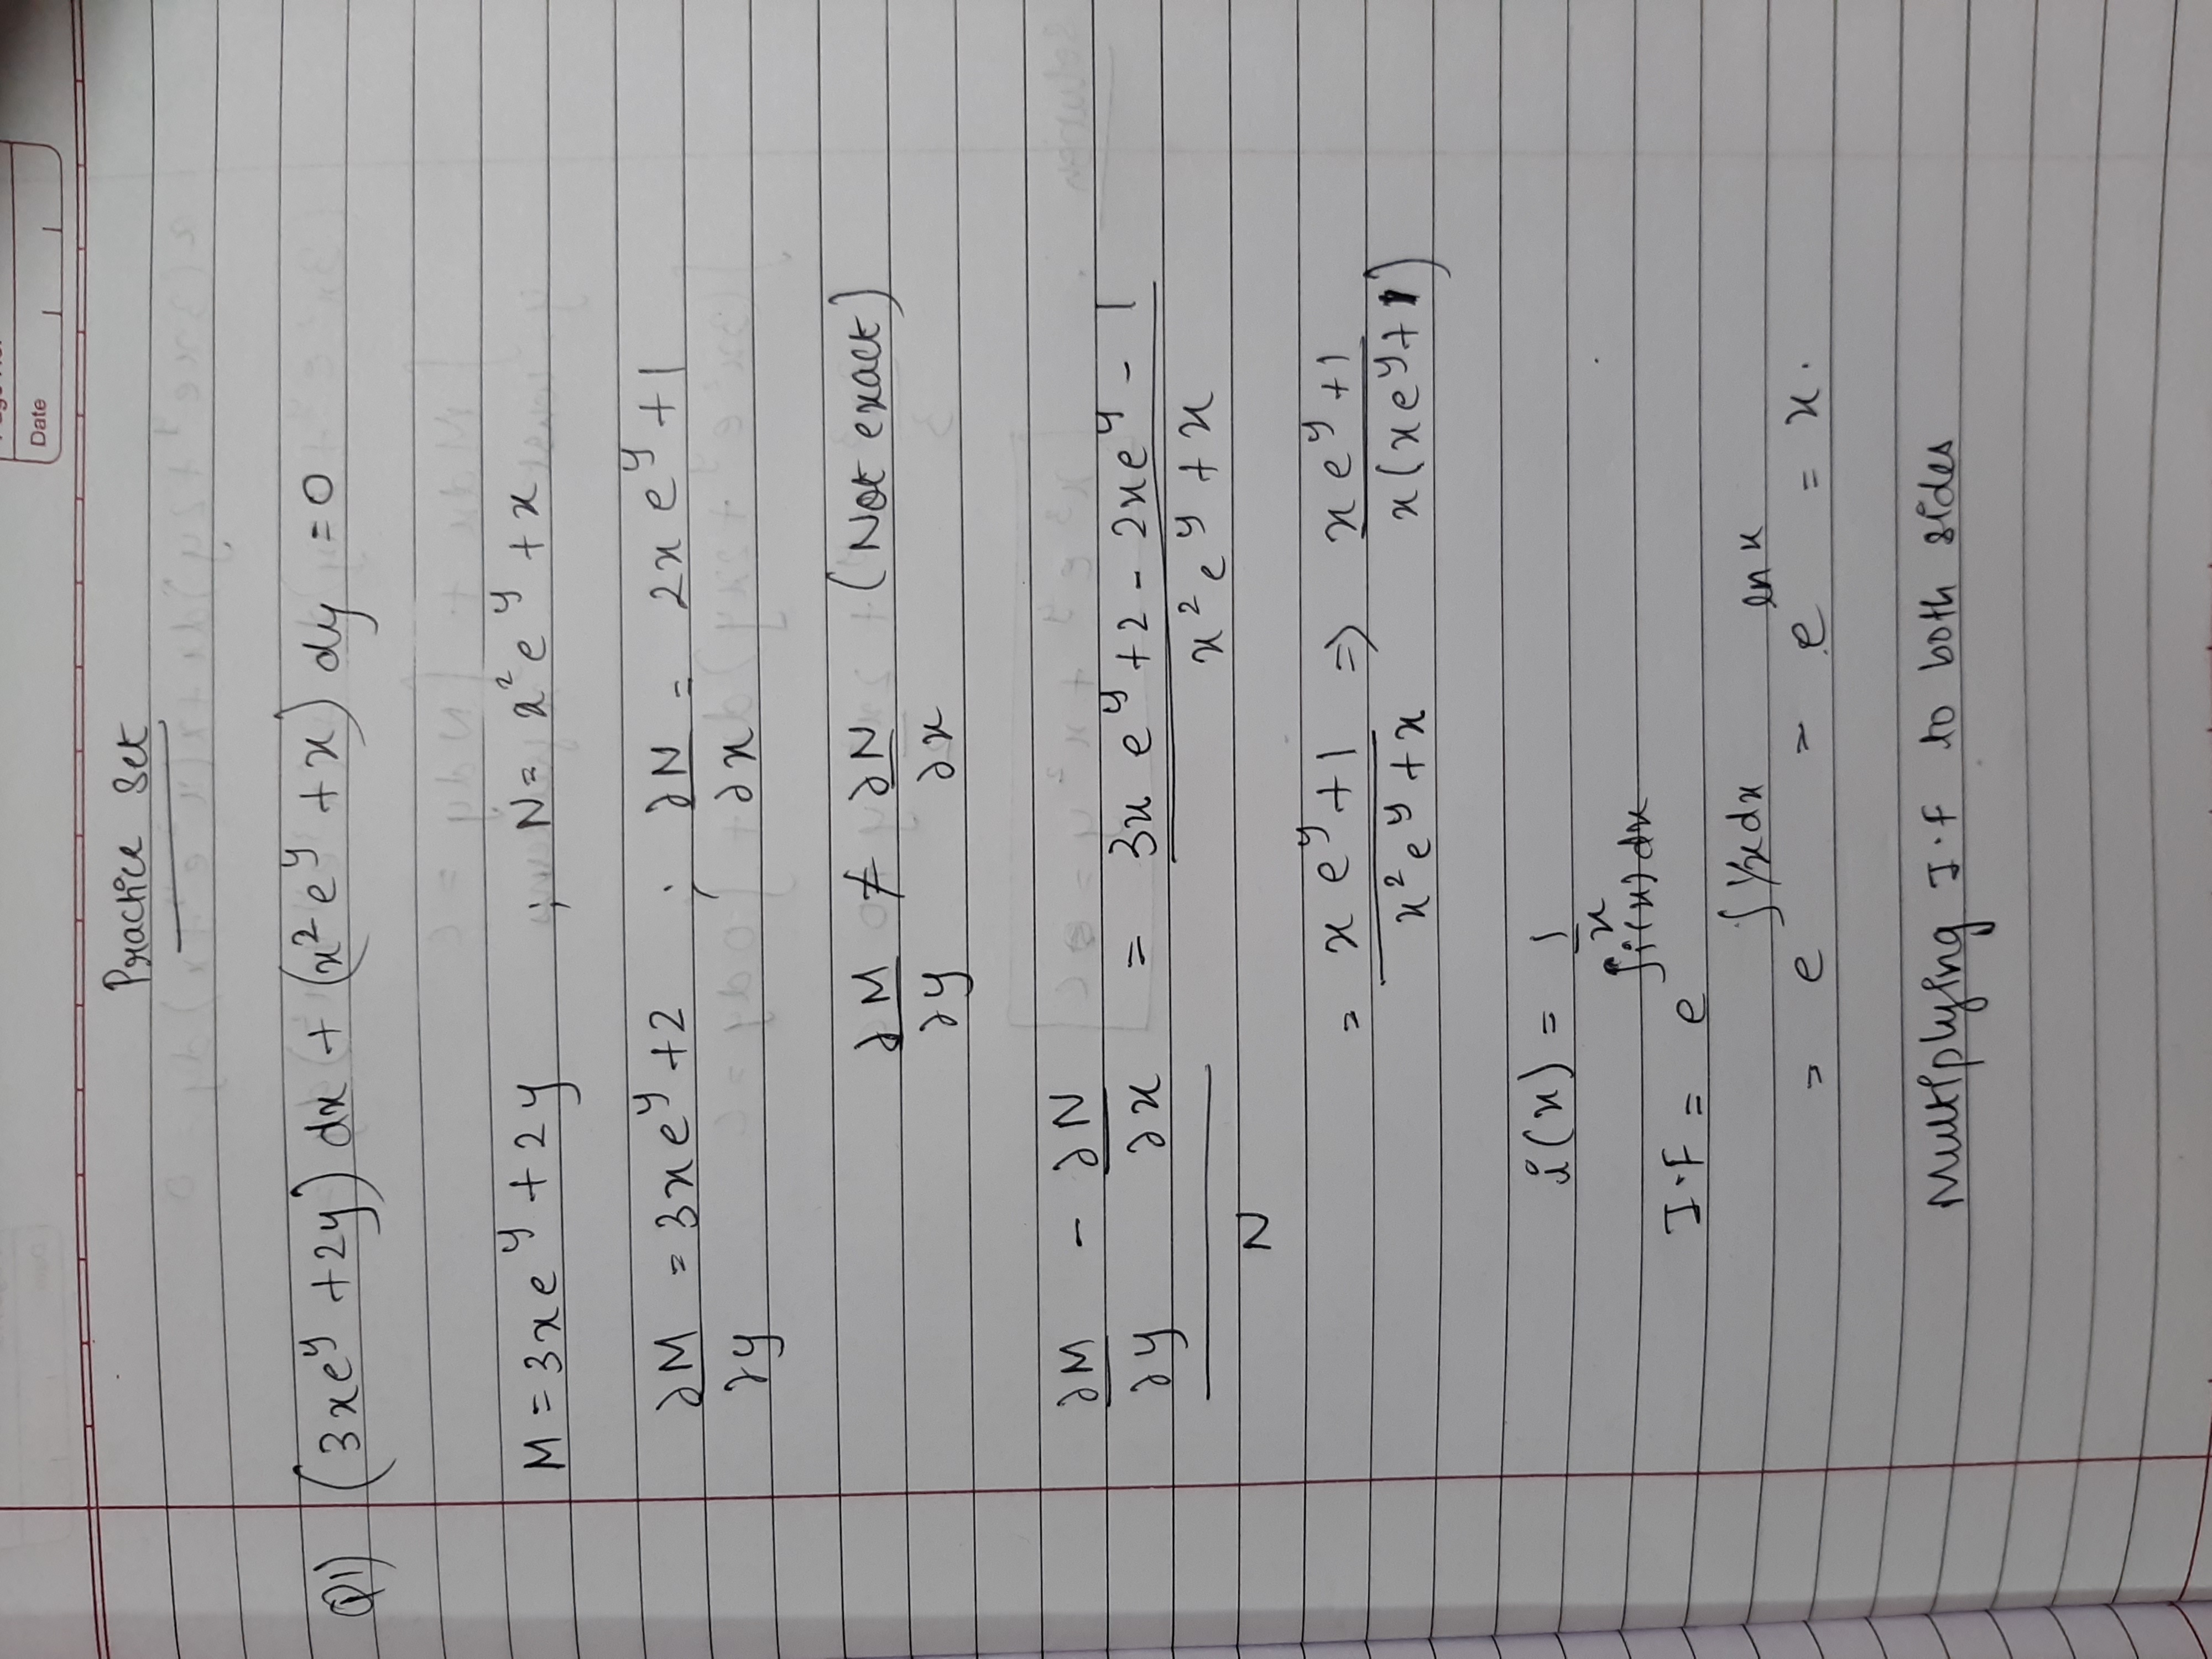 Date
Practice Set
Q1) (3xe^y + 2y) dx + (x^2 e^y + x) dy = 0
M = 3xe^y + 2y ; N = x^2 e^y + x
∂M/∂y = 3xe^y + 2 ; ∂N/∂x = 2xe^y + 1
∂M/∂y ≠ ∂N/∂x (Not exact)
(∂M/∂y - ∂N/∂x)/N = (3x e^y + 2 - 2xe^y - 1)/(x^2 e^y + x)
= (x e^y + 1)/(x^2 e^y + x) ⇒ (x e^y + 1)/(x(xe^y + 1))
i(x) = 1/x
I.F = e^(∫i(x) dx)
= e^(∫ 1/x dx) = e^(ln x) = x.
Multiplying I.F to both sides